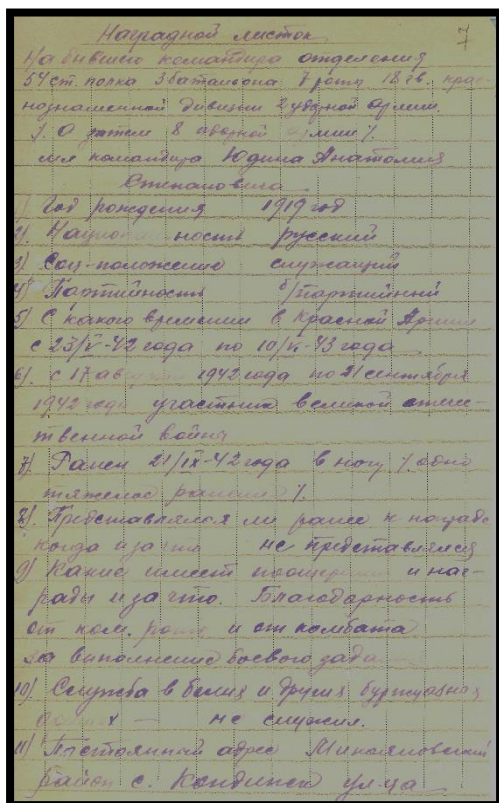 7
Наградной листок
На бывшего командира отделения
54 ст. полка 3 батальона 7 роты 18 гв. крас-
нознаменной дивизии 2 ударной армии.
/. О затем 8 ударной армии /.
мл командира Юдина Анатолия
Степановича
1) Год рождения 1919 год
2). Националность русский
3) Соц-положение служащий
4) Партийность б/партийный
5) С какого времени в Красной Армии
с 23/V-42 года по 10/VI-43 года
6). с 17 августа 1942 года по 21 сентября
1942 года участник великой отече-
ственной войны
7). Ранен 21/IX-42 года в ногу /. одно
тяжелое ранение /.
8). Представлялся ли ранее к награде
когда и за что не представлялся
9) Какие имеет поощрения и наг-
рады и за что. Благодарность
от ком. роты и от комбата
за выполнение боевого зада
10). Служба в белых и других буржуазных
не служил.
11) Постоянный адрес Микояловский
район с. Кондинск ул-ца